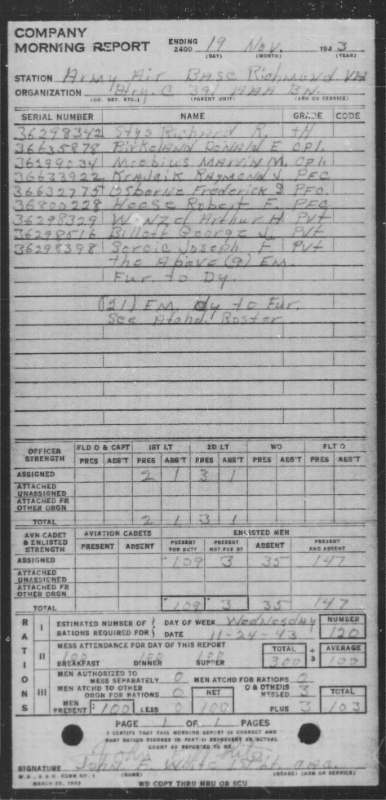 COMPANY
MORNING REPORT ENDING 2400 19 Nov. 1943
(DAY) (MONTH) (YEAR)
STATION Army Air Base Richmond VA
ORGANIZATION Btry. C 391 AAA BN.
(PARENT UNIT) (ARM OR SERVICE)
SERIAL NUMBER NAME GRADE CODE
36298342 Richard R.
36635878 Donald E. Cpl.
36199034 Moebius Marvin M. Cpl.
36633922 Kraynik Raymond J. PFC
36632775 Osborne Frederick PFC.
36800228 Heese Robert F. PFC
36298329 Arthur H Pvt
36298516 Billott George J. Pvt
36298398 Joseph F. Pvt
the Above (9) EM.
Fur. to Dy.
(21) EM. dy to Fur.
See Atchd. Roster
OFFICER STRENGTH FLD O & CAPT 1ST LT 2D LT WO FLT O
PRES ABS'T PRES ABS'T PRES ABS'T PRES ABS'T PRES ABS'T
ASSIGNED 2 1 3 1
ATTACHED UNASSIGNED
ATTACHED FR OTHER ORGN
TOTAL 2 1 3 1
AVN CADET & ENLISTED STRENGTH AVIATION CADETS ENLISTED MEN
PRESENT ABSENT PRESENT FOR DUTY PRESENT NOT FOR DY ABSENT PRESENT AND ABSENT
ASSIGNED 109 3 35 147
ATTACHED UNASSIGNED
ATTACHED FR OTHER ORGN
TOTAL 109 3 35 147
RATIONS
I ESTIMATED NUMBER OF RATIONS REQUIRED FOR DAY OF WEEK Wednesday NUMBER
DATE 11-24-43 120
II MESS ATTENDANCE FOR DAY OF THIS REPORT TOTAL ÷ 3 AVERAGE
100 BREAKFAST 100 DINNER 100 SUPPER 300 100
III MEN AUTHORIZED TO MESS SEPARATELY 0 MEN ATCHD FOR RATIONS 0
MEN ATCHD TO OTHER ORGN FOR RATIONS 0 NET O & OTHERS MESSED 3 TOTAL
MEN PRESENT 100 LESS 0 100 PLUS 3 103
PAGE 1 OF 1 PAGES
I CERTIFY THAT THIS MORNING REPORT IS CORRECT AND
SIGNATURE John F. White
(NAME) (GRADE) (ARM OR SERVICE)
W.D., A.G.O. FORM NO. 1
WD COPY THRU MRU OR SCU